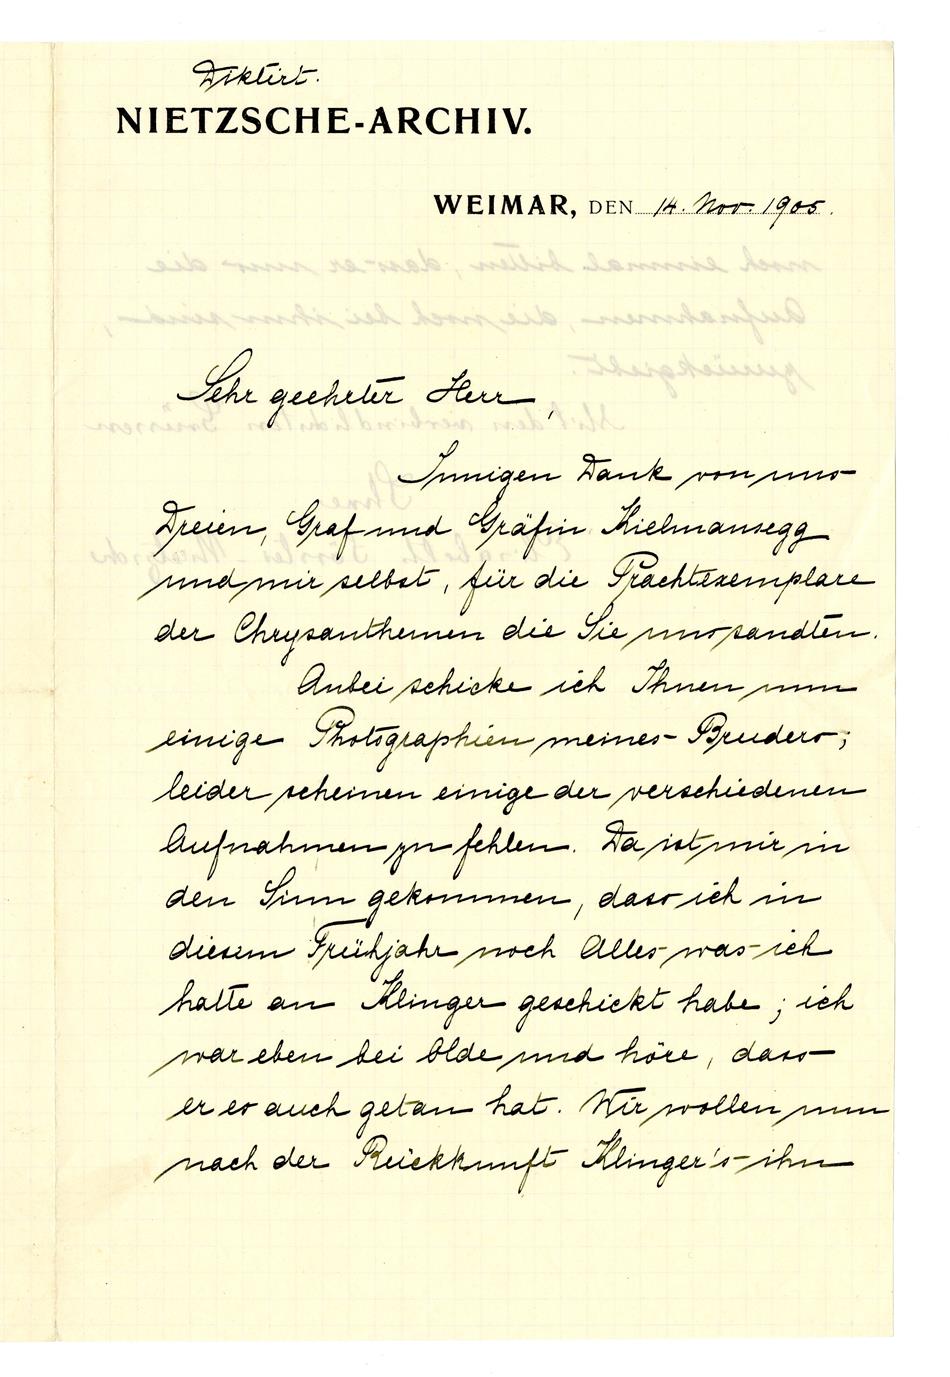 Diktirt.
NIETZSCHE-ARCHIV.
WEIMAR, DEN 14. Nov. 1905.
Sehr geehrter Herr,
Innigen Dank von uns
Dreien, Graf und Gräfin Kielmansegg
und mir selbst, für die Prachtexemplare
der Chrysanthemen die Sie uns sandten.
Anbei schicke ich Ihnen nun
einige Photographien meines Bruders;
leider scheinen einige der verschiedenen
Aufnahmen zu fehlen. Da ist mir in
den Sinn gekommen, dass ich in
diesem Frühjahr noch Alles was ich
hatte an Klinger geschickt habe; ich
war eben bei Olde und höre, dass
er es auch getan hat. Wir wollen nun
nach der Rückkunft Klinger's ihn
noch einmal bitten, dass er uns die
Aufnahmen, die noch bei ihm sind,
zurückgibt.
Mit den verbindlichsten Grüssen
Ihre
Elisabeth Förster-Nietzsche